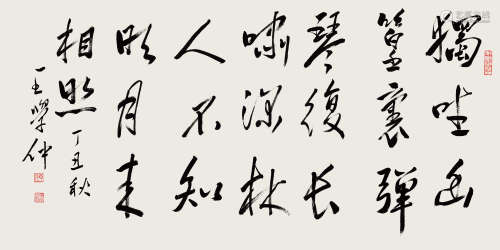 獨坐幽
篁裏彈
琴復長
嘯深林
人不知
明月来
相照
丁丑秋
王學仲